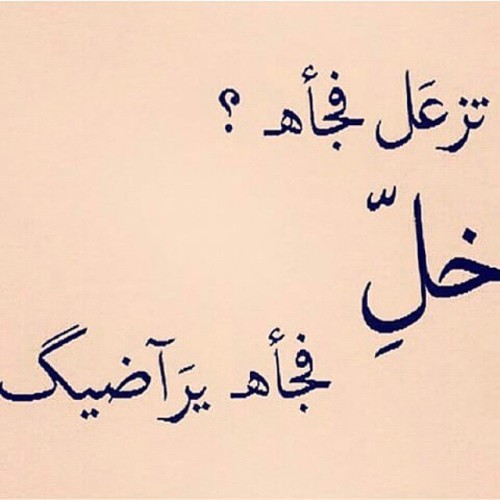 تزعَل فجأهـ ؟
خلِّ
فجأهـ يرَآضيگ